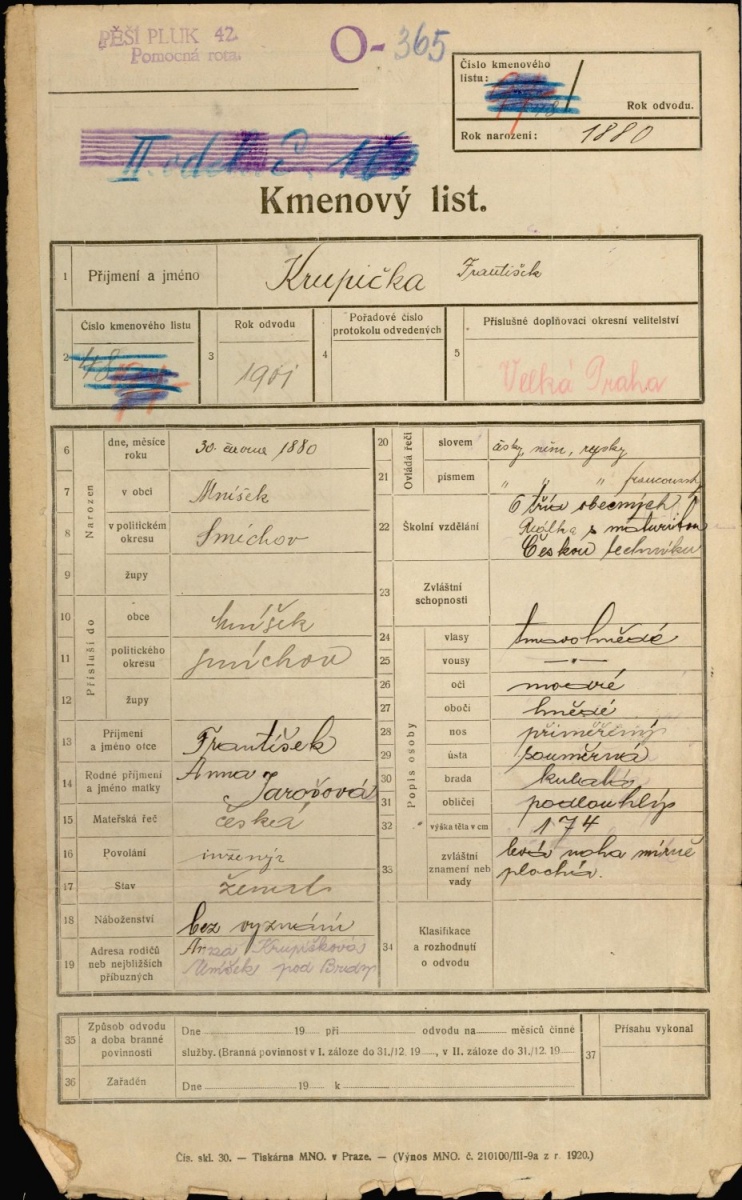 PĚŠÍ PLUK 42.
Pomocná rota.
O-365
Číslo kmenového
listu:
Rok odvodu.
Rok narození: 1880
II. odděl. č.
Kmenový list.
1 Příjmení a jméno Krupička František
2 Číslo kmenového listu 48
3 Rok odvodu 1901
4 Pořadové číslo protokolu odvedených
5 Příslušné doplňovací okresní velitelství Velká Praha
Narozen
6 dne, měsíce roku 30. června 1880
7 v obci Mníšek
8 v politickém okresu Smíchov
9 župy
Přísluší do
10 obce Mníšek
11 politického okresu Smíchov
12 župy
13 Příjmení a jméno otce František
14 Rodné příjmení a jméno matky Anna Jarošová
15 Mateřská řeč česká
16 Povolání inženýr
17 Stav ženat
18 Náboženství bez vyznání
19 Adresa rodičů neb nejbližších příbuzných Anna Krupičková Mníšek pod Brdy
Ovládá řeči
20 slovem česky, něm, rusky
21 písmem " " " francouzsky
22 Školní vzdělání 6 tříd obecných
Reálka s maturitou
Českou techniku
23 Zvláštní schopnosti
Popis osoby
24 vlasy tmavohnědé
25 vousy — " —
26 oči modré
27 obočí hnědé
28 nos přiměřený
29 ústa souměrná
30 brada kulatá
31 obličej podlouhlý
32 výška těla v cm 174
33 zvláštní znamení neb vady levá noha mírně
plochá.
34 Klasifikace a rozhodnutí o odvodu
35 Způsob odvodu a doba branné povinnosti Dne 19 při odvodu na měsíců činné
služby. (Branná povinnost v I. záloze do 31./12. 19 , v II. záloze do 31./12. 19
36 Zařaděn Dne 19 k
37 Přísahu vykonal
Čís. skl. 30. — Tiskárna MNO. v Praze. — (Výnos MNO. č. 210100/III-9a z r. 1920.)